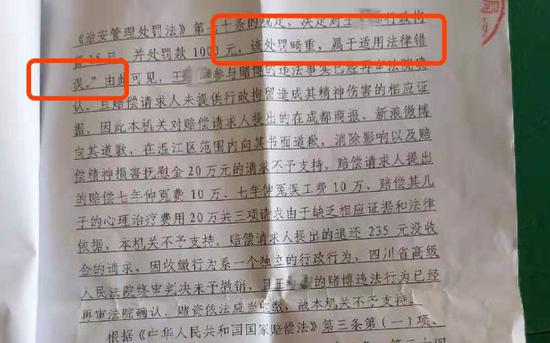 《治安管理处罚法》第七十条的规定，决定对王 行政拘
留15日，并处罚款1000元，该处罚畸重，属于适用法律错
误。”由此可见，王 参与赌博的违法事实已经再审法院确
认，且赔偿请求人未提供行政拘留造成其精神伤害的相应证
据，因此本机关对赔偿请求人提出的在成都商报、新浪微博
向其道歉，在洪江区范围内向其书面道歉，消除影响以及赔
偿精神损害抚慰金20万元的请求不予支持，赔偿请求人提出
的赔偿七年伸冤费10万、七年伸冤误工费10万、赔偿其儿
子的心理治疗费用20万共三项请求由于缺乏相应证据和法律
依据，本机关不予支持，赔偿请求人提出的退还235元没收
合的请求，因收缴行为系一个独立的行政行为，四川省高级
人民法院终审判决未予撤销，且王 的赌博违法行为已经
再审法院确认，赌资依法应当收缴，故本机关不予支持。
根据《中华人民共和国国家赔偿法》第三条第（一）项、